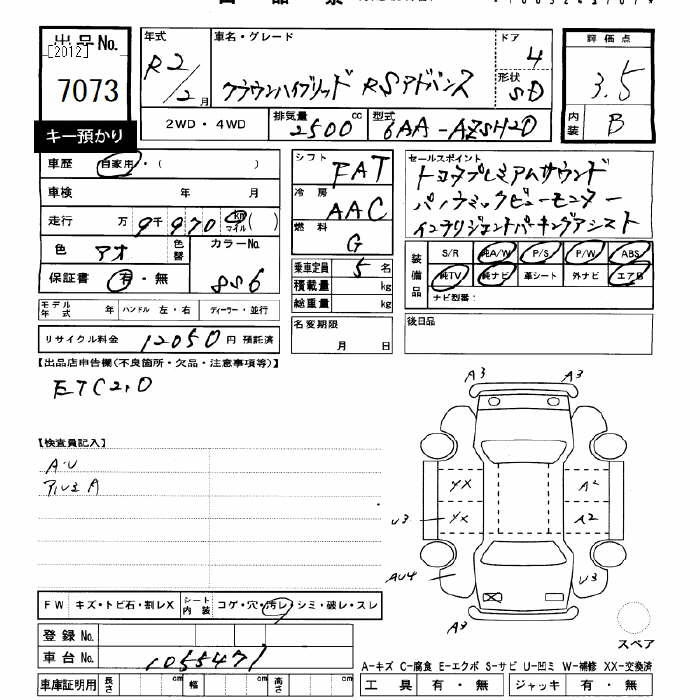 出品No.
[2012]
7073
キー預かり
年式
R2/2月
車名・グレード
クラウンハイブリッド RSアドバンス
ドア
4
形状
SD
2WD・4WD
排気量
2500cc
型式
6AA-AZSH20
評価点
3.5
内装
B
車歴 自家用・( )
車検 年 月
走行 万9千970 km マイル ( )
色 アオ 色替
カラーNo.
8S6
保証書 有・無
モデル年式 年 ハンドル 左・右 ディーラー・並行
リサイクル料金 12050円預託済
シフト
FAT
冷房
AAC
燃料
G
乗車定員 5名
積載量 kg
総重量 kg
名変期限
月 日
セールスポイント
トヨタプレミアムサウンド
パノラミックビューモニター
インテリジェントパーキングアシスト
装備品
S/R 純A/W P/S P/W ABS
純TV 純ナビ 革シート 外ナビ エアB
ナビ型番:
後日品
【出品店申告欄(不良箇所・欠品・注意事項等)】
ETC2.0
【検査員記入】
A・U
A3 A3
YX A2
U3 YX A2
AU4 U3
A3
スペア
FW キズ・トビ石・割レX シート内装 コゲ・穴・汚レ・シミ・破レ・スレ
登録No.
車台No. 1055471
車庫証明用 長さ cm 幅 cm 高さ cm
A-キズ C-腐食 E-エクボ S-サビ U-凹ミ W-補修 XX-交換済
工具 有・無 ジャッキ 有・無